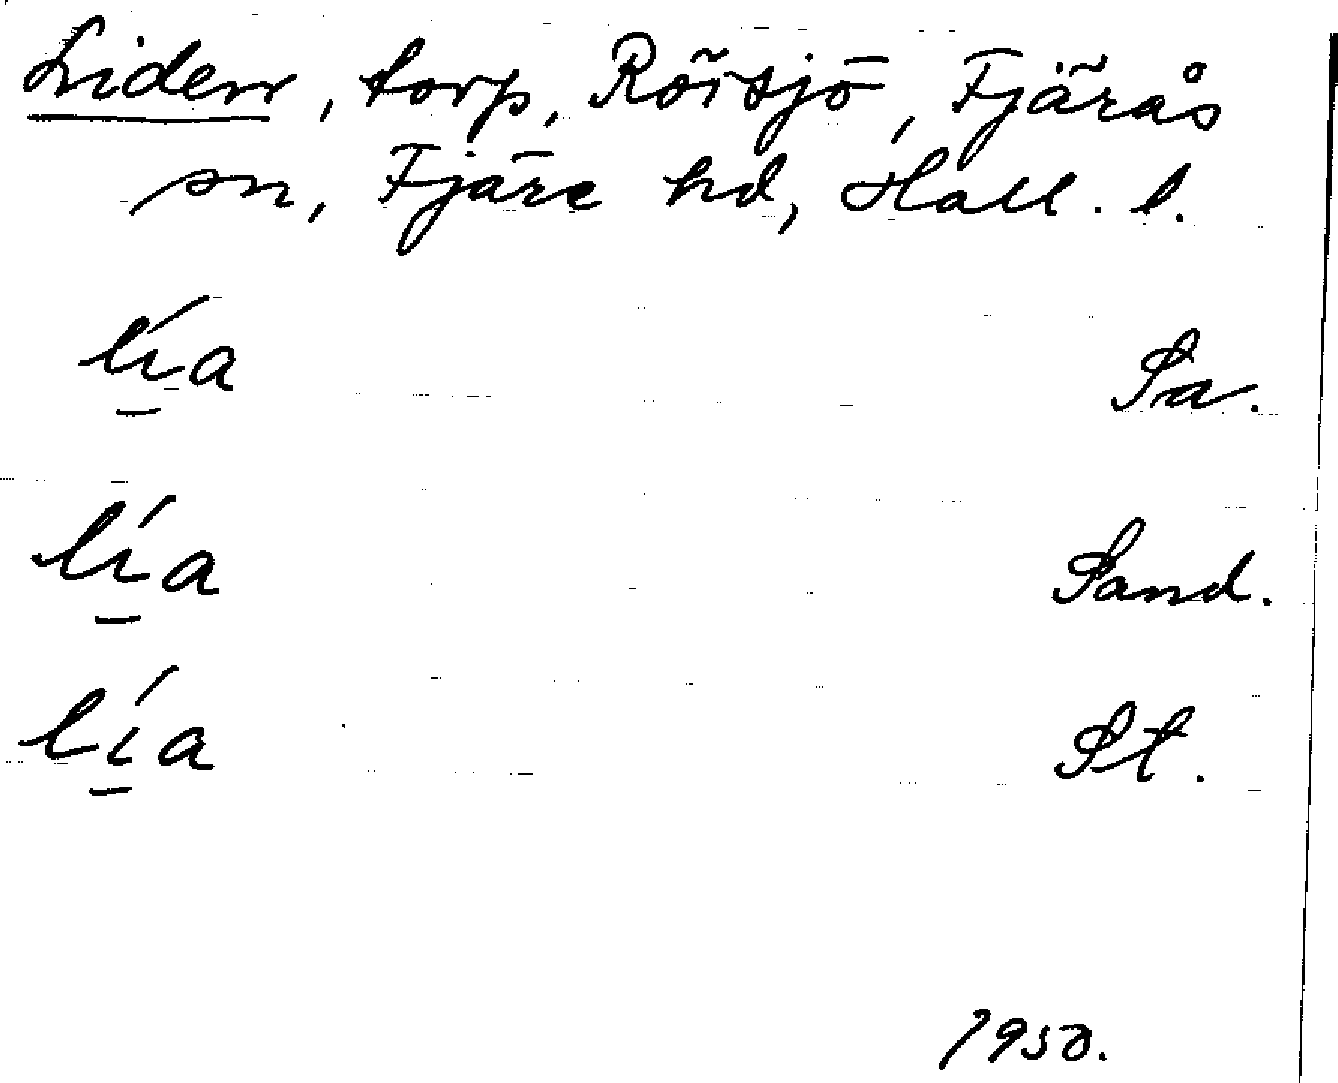 Liden, torp, Rörsjö, Fjärås
sn, Fjäre hd, Hall. l.
lí̠a Sa.
lí̠a Sand.
lí̠a St.
1950.